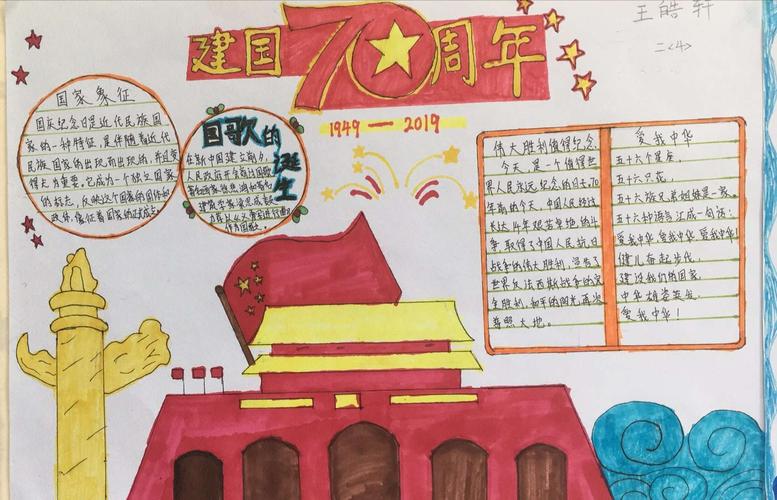 王皓轩
二<4>
建国70周年
1949—2019
国家象征
国庆纪念日是近代民族国
家的一种特征,是伴随着近代
民族国家的出现而出现的,并且变
得尤为重要。它成为一个独立国家
的标志,反映这个国家的国体和
政体,象征着国家的
国歌的诞生
在新中国建立前夕,
人民政府开会商讨国歌
著名画家徐悲鸿和著名
建筑学家梁思成,都
主张以义勇军进行曲
作为国歌。
伟大胜利值得纪念
今天,是一个值得世
界人民永远纪念的日子,70
年前的今天,中国人民经过
长达14年艰苦卓绝的斗
争,取得了中国人民抗日
战争的伟大胜利,宣告了
世界反法西斯战争的完
全胜利,和平的阳光再次
普照大地。
爱我中华
五十六个星座,
五十六只花,
五十六族兄弟姐妹是一家,
五十六种语言汇成一句话:
爱我中华爱我中华爱我中华!
健儿奋起步伐,
建设我们的国家,
中华雄姿英发,
爱我中华!